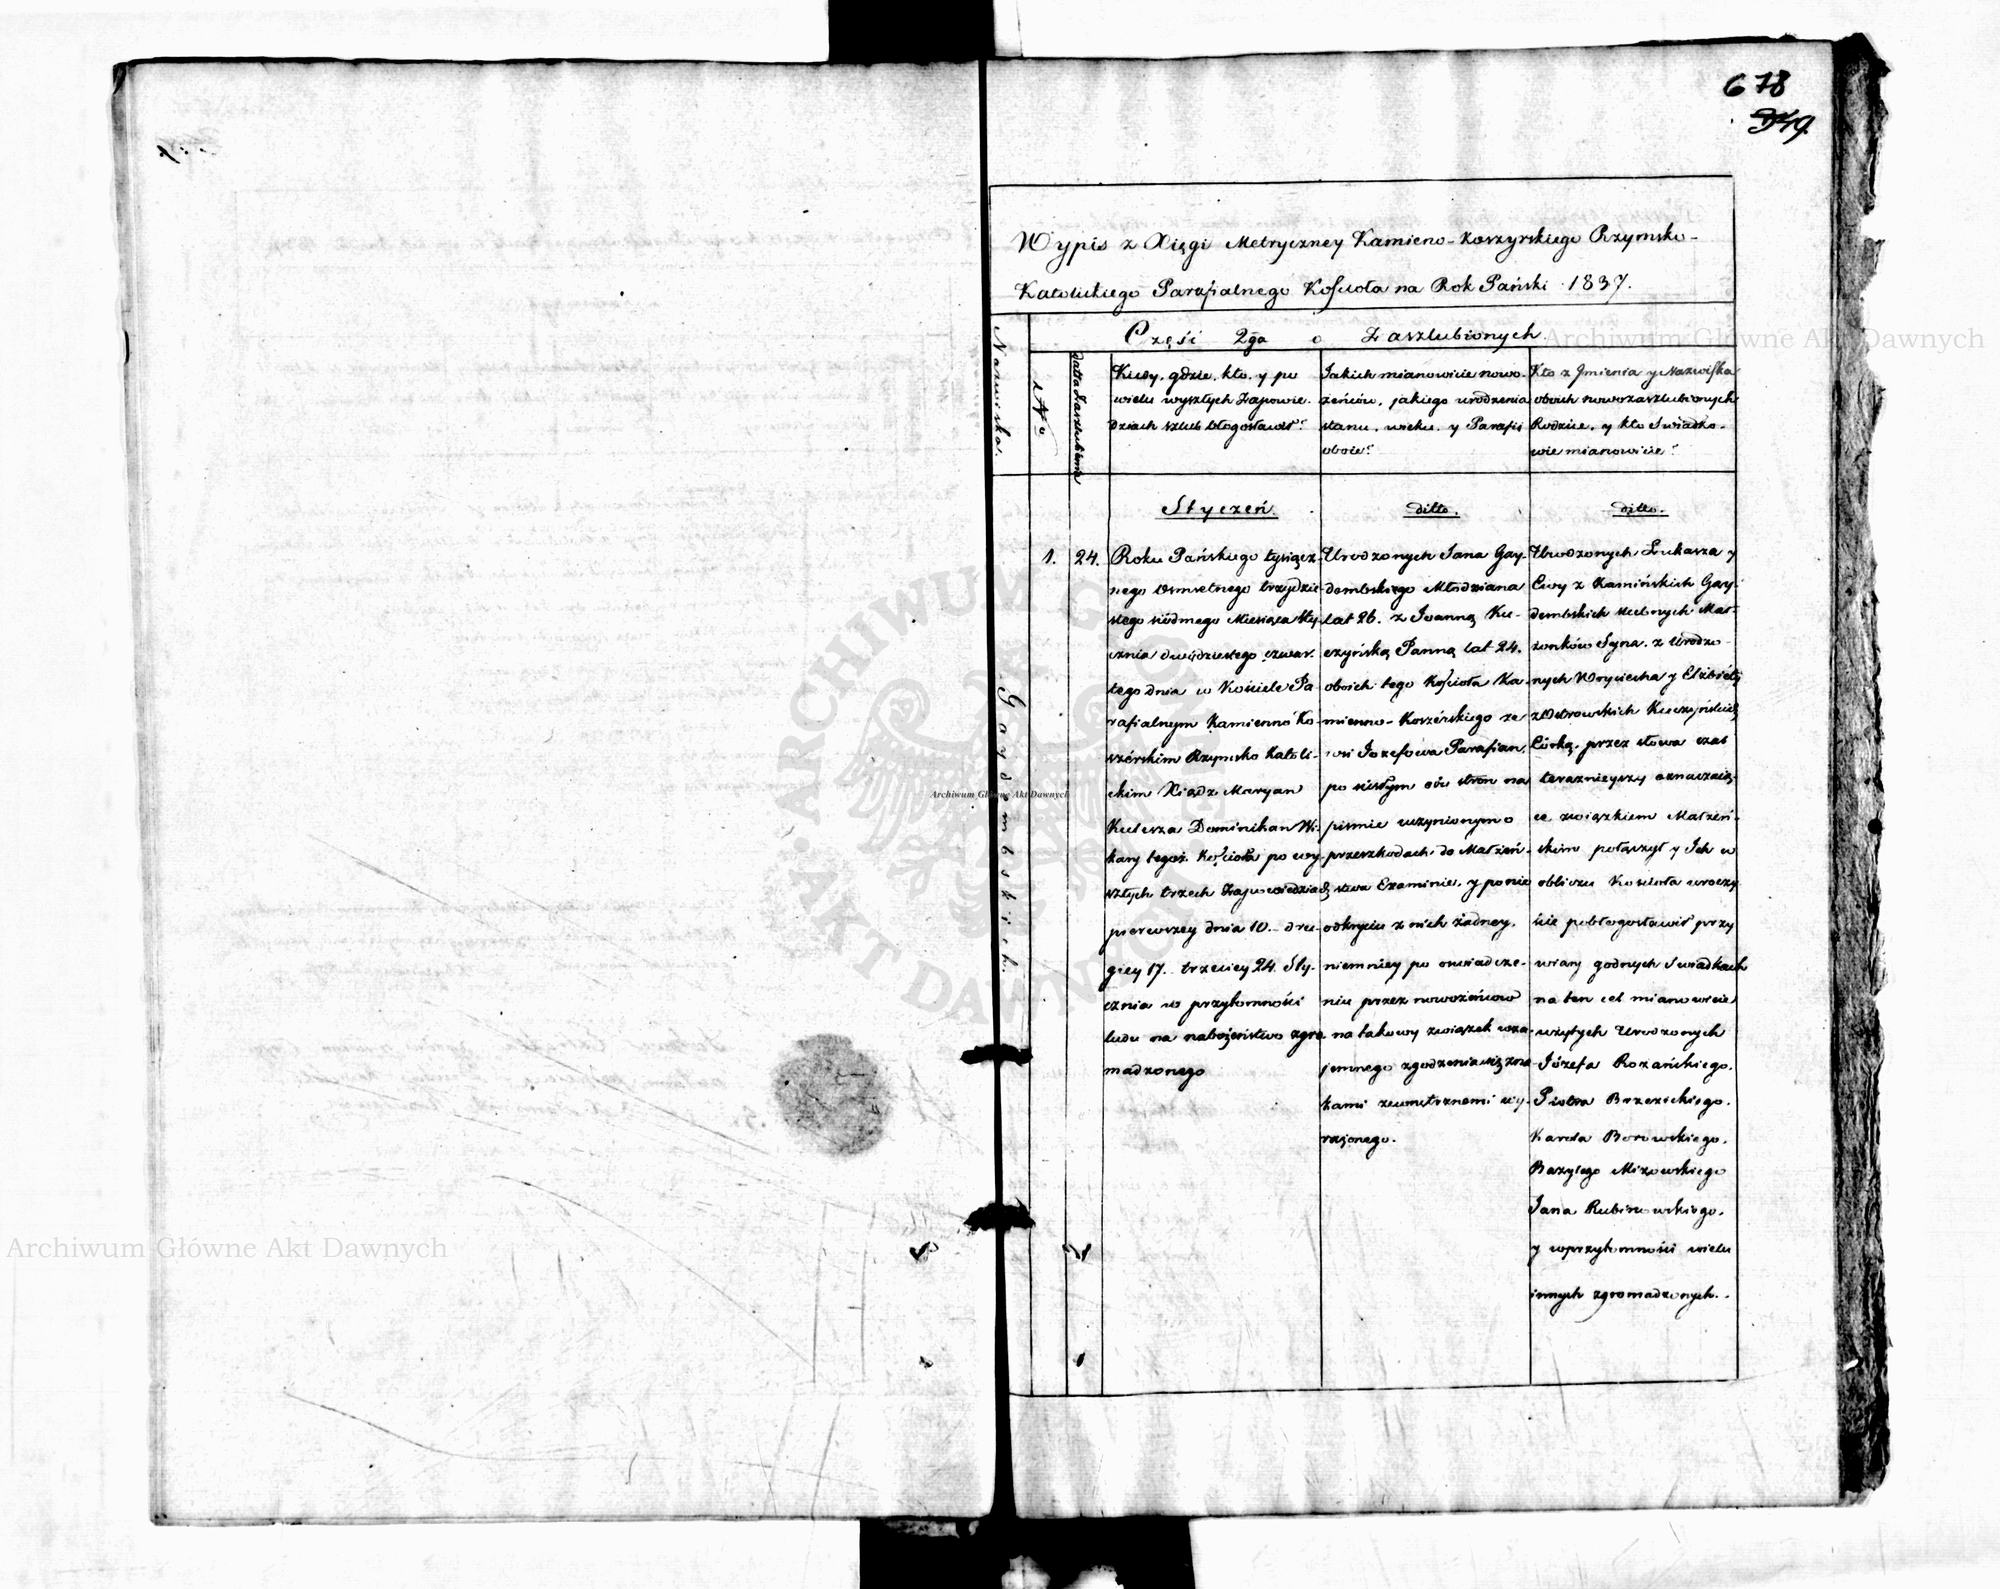 678
Wypis z Xięgi Metryczney Kamieno-Koszyrskiego Rzymsko-
Katolickiego Parafialnego Kościoła na Rok Pański 1837.
Części 2ga o Zaszlubionych
Nazwiska.
No
Datta Zaszlubienia
Kiedy, gdzie, kto, y po
wielu wyszłych Zapowie-
dziach szlub błogosławił?
Jakich mianowicie nowo-
żeńców, jakiego urodzenia
stanu, wieku, y Parafii
oboie?
Kto z Jmienia y Nazwiska
oboich nowozaszlubionych
Rodzice, y kto Swiadko-
wie mianowicie?
Gaydembskich.
1.
24.
Styczeń.
Roku Pańskiego tysiącz-
nego osmsetnego trzydzie-
stego siódmego Miesiąca Sty-
cznia dwudziestego czwar-
tego dnia w Kościele Pa
rafialnym Kamienno Ko-
szérskim Rzymsko Katoli-
ckim Xiądz Maryan
Kulesza Dominikan Wi-
kary tegoż Kościoła po wy-
szłych trzech Zapowiedziach
pierwszey dnia 10. dru-
giey 17. trzeciey 24. Sty-
cznia w przytomności
ludu na nabożeństwo zgro
madzonego
ditto.
Urodzonych Jana Gay-
dembskiego Młodziana
lat 26. z Joanną Ku-
czyńską Panną lat 24.
oboich tego Kościoła Ka-
mienno-Koszérskiego ze
wsi Jozefowa Parafian,
po scisłym obu stron na
piśmie uczynionym o
przeszkodach do Małżeń-
stwa Examinie, y po nie
odkryciu z nich żadney,
niemniey po oswiadcze-
niu przez nowożeńców
na takowy związek wza-
jemnego zgodzenia się zna
kami zewnętrznemi wy-
rażonego.
ditto.
Urodzonych Łukasza y
Ewy z Kamińskich Gay-
dembskich slubnych Mał-
żonków Syna, z Urodzo-
nych Woyciecha y Elżbiety
z Ostrowskich Kuczyńskich
Córką, przez słowa czas
teraznieyszy oznaczają-
ce związkiem Małżeń-
skim połączył y Ich w
obliczu Kościoła uroczy
ście pobłogosławił przy
wiary godnych Swiadkach
na ten cel mianowicie
użytych Urodzonych
Józefa Rozańskiego,
Piotra Brzezickiego,
Karola Borowskiego,
Bazylego Mizowskiego
Jana Rubinowskiego,
y w przytomności wielu
innych zgromadzonych.
Archiwum Główne Akt Dawnych
Archiwum Główne Akt Dawnych
Archiwum Główne Akt Dawnych
ARCHIWUM GŁÓWNE AKT DAWNYCH